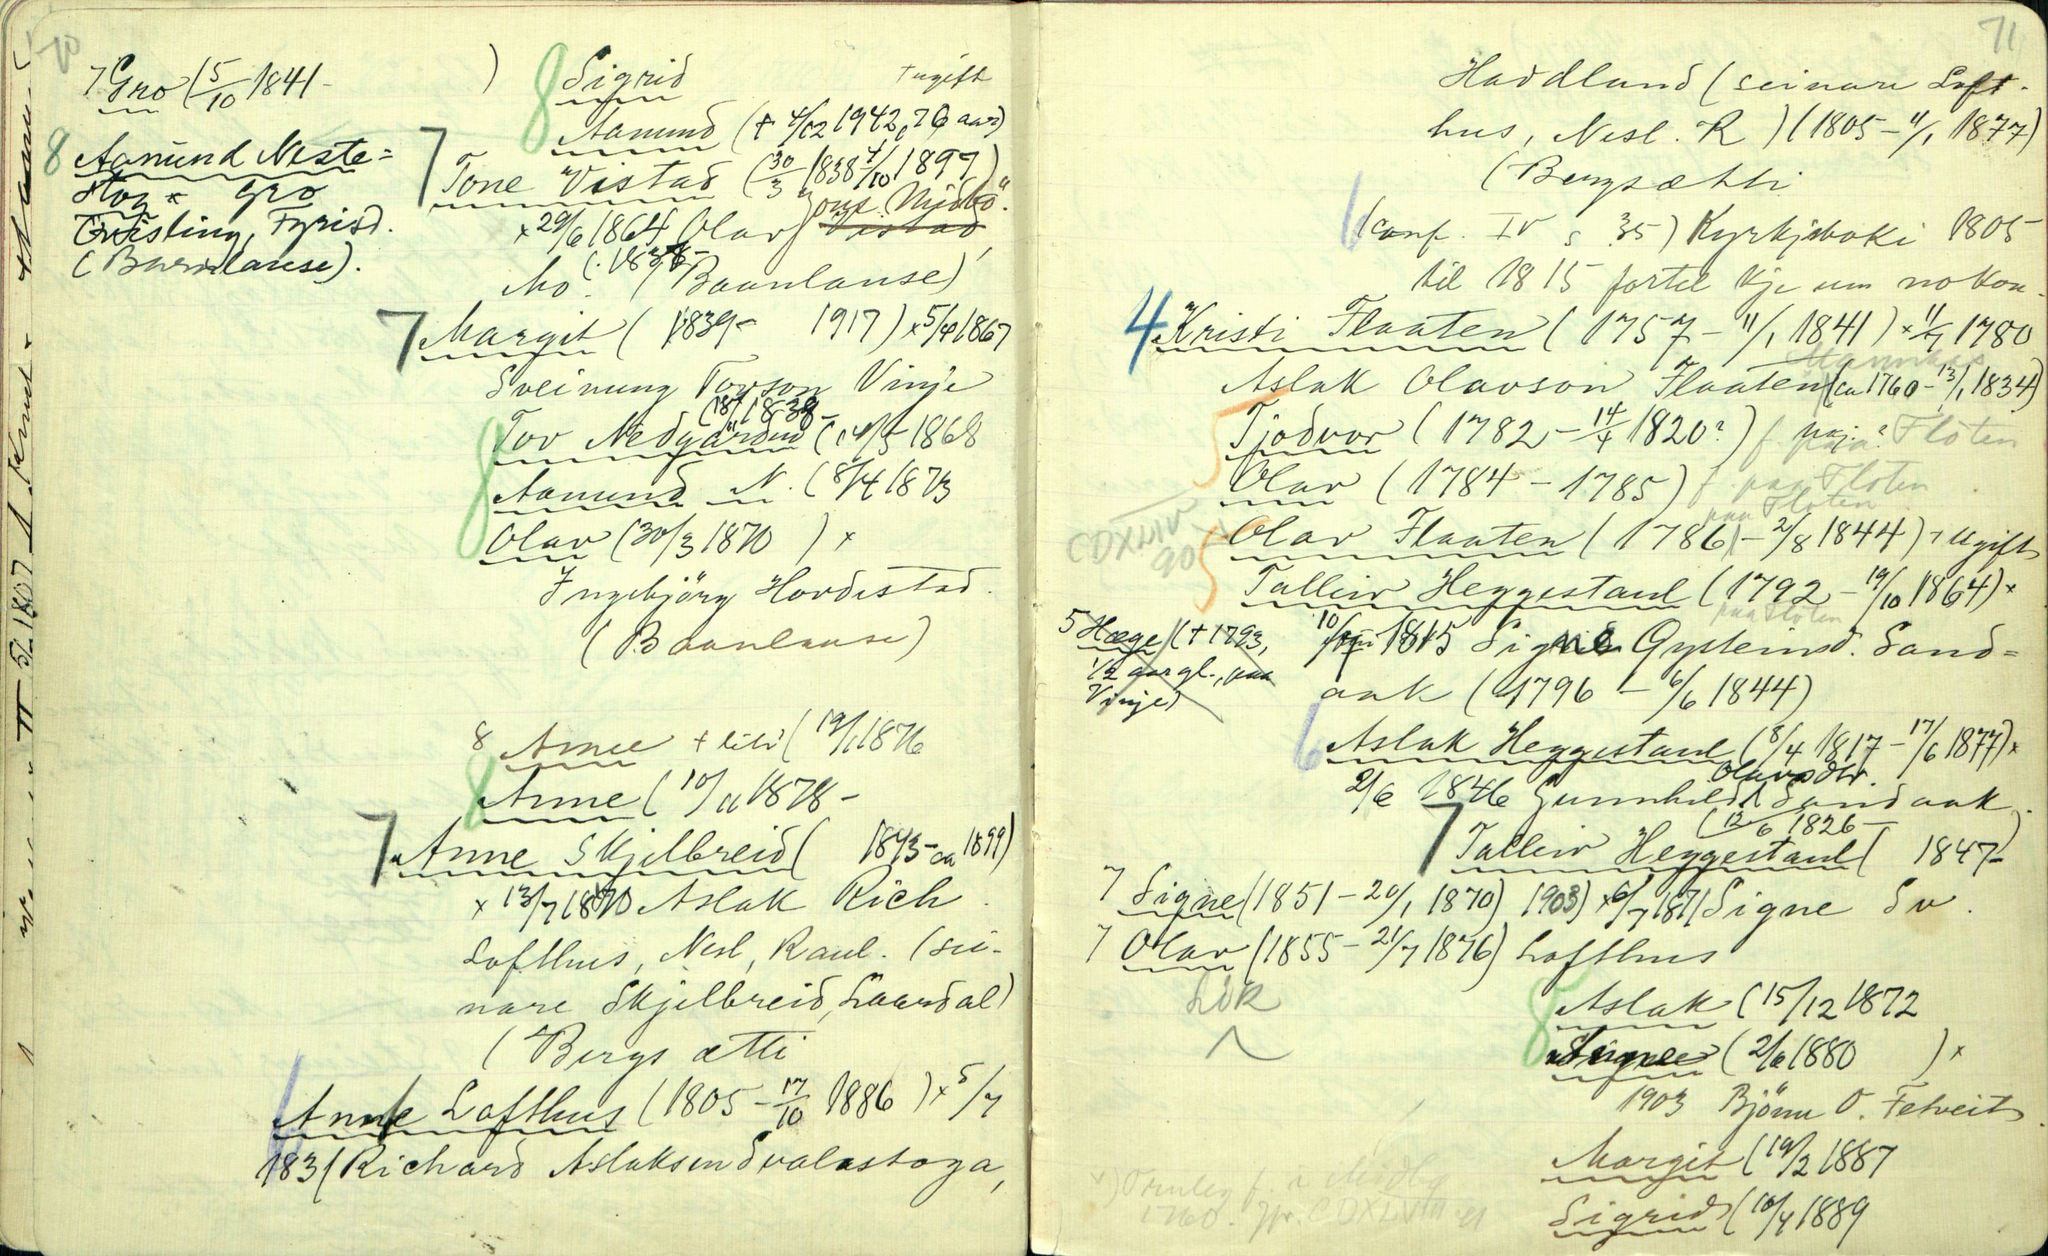 70
7 Gro (5/10 1841 - )
8 Aamund Neste=
stog × Gro
Kvisling, Fyrisd.
(Barnlause).
8 Sigrid + ugift
Aamund (+ 4/12 1942, 76 aar)
7 Tone Vistad (30/3 1838 4/10 1897)
× 29/6 1864 Olav Jons. Mjåbö".
Vistad,
Mo. (Baanlause)
7 Margit (1839 - 1917) × 5/4 1867
Sveinung Tovson Vinje
(18/1 1838 -
8 Tov Nedgården (14/5 1868
Aamund N. (8/4 1873
8 Olav (30/3 1870 ) ×
Ingebjörg Hordestad.
(Baanlause)
8 Anne + liti (19/1 1876
8 Anne (10/11 1878 -
7 Anne Skjelbreid ( 1843 - ca 1899)
× 13/7 1870 Aslak Rich.
Lofthus, Nesl, Raul. (sei-
nare Skjelbreid, Laardal)
(Bergs ætti
6 Anne Lofthus (1805 - 17/10 1886) × 5/7
1831 Richard Aslaksen Svalastoga,
71
Haddland (seinare Loft-
hus, Nesl. R) (1805 - 11/1 1877)
(Bergsætti
6 (conf. IV s 35) Kyrkjeboki 1805-
til 1815 fortel kje um nokon.
4 Kristi Flaaten (1757 - 11/1 1841) × 11/7 1780
Aslak Olavson Flaaten (ca 1760 - 13/1 1834)
5 Tjodvor (1782 - 14/4 1820?) f. paa Flöten
Olav (1784 - 1785) f. paa Flöten
paa Flöten
CDXLIV
90
5 Olav Flaaten (1786 - 2/8 1844) + Ugift
Talleiv Heggestaul (1792 - 19/10 1864) ×
paa Flöten
5 Hæge (+ 1793,
1/2 aar gl., paa
Vinje)
10/ 1815 Signe Gystensd. Sand=
aak (1796 - 6/6 1844)
6 Aslak Heggestaul (8/4 1817 - 17/6 1877) ×
2/6 1846 Gunnhild Olavsdtr. Sandaak.
(12/6 1826 -
7 Talleiv Heggestaul ( 1847 -
7 Signe (1851 - 20/1 1870) 1903) × 6/7 1871 Signe Sv.
7 Olav (1855 - 21/7 1876) Lofthus
8 Aslak (15/12 1872
8 Signe (2/6 1880 ) ×
1903 Björn O. Felveit
Margit (19/2 1887
Sigrid (10/4 1889
1760. CDXLVIII